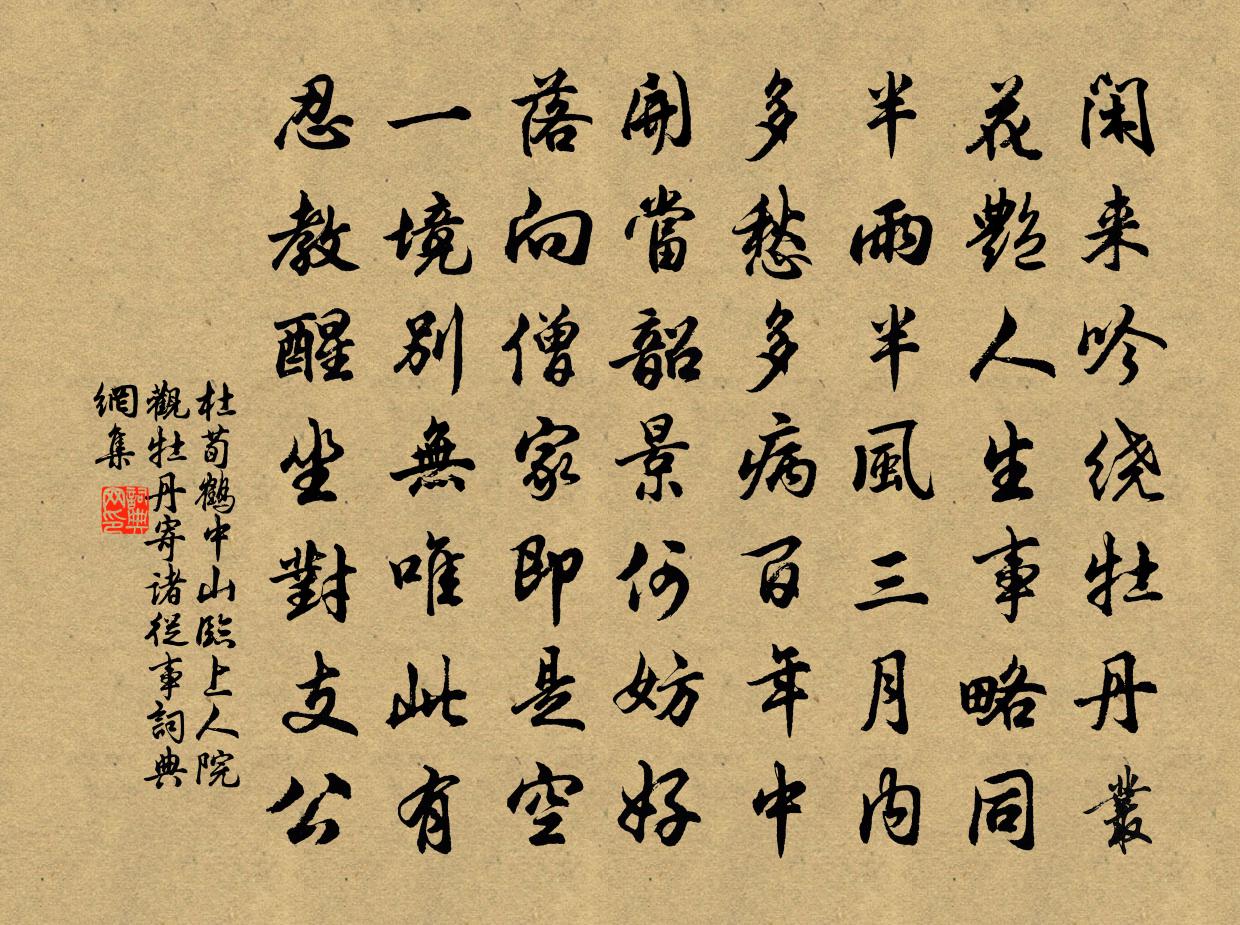 闲来吟绕牡丹叢
花艷人生事略同
半雨半風三月内
多愁多病百年中
開當韶景何妨好
落向僧家即是空
一境别無唯此有
忍教醒坐對支公
杜荀鶴中山臨上人院
觀牡丹寄诸從事詞典
網集
詞典
网印